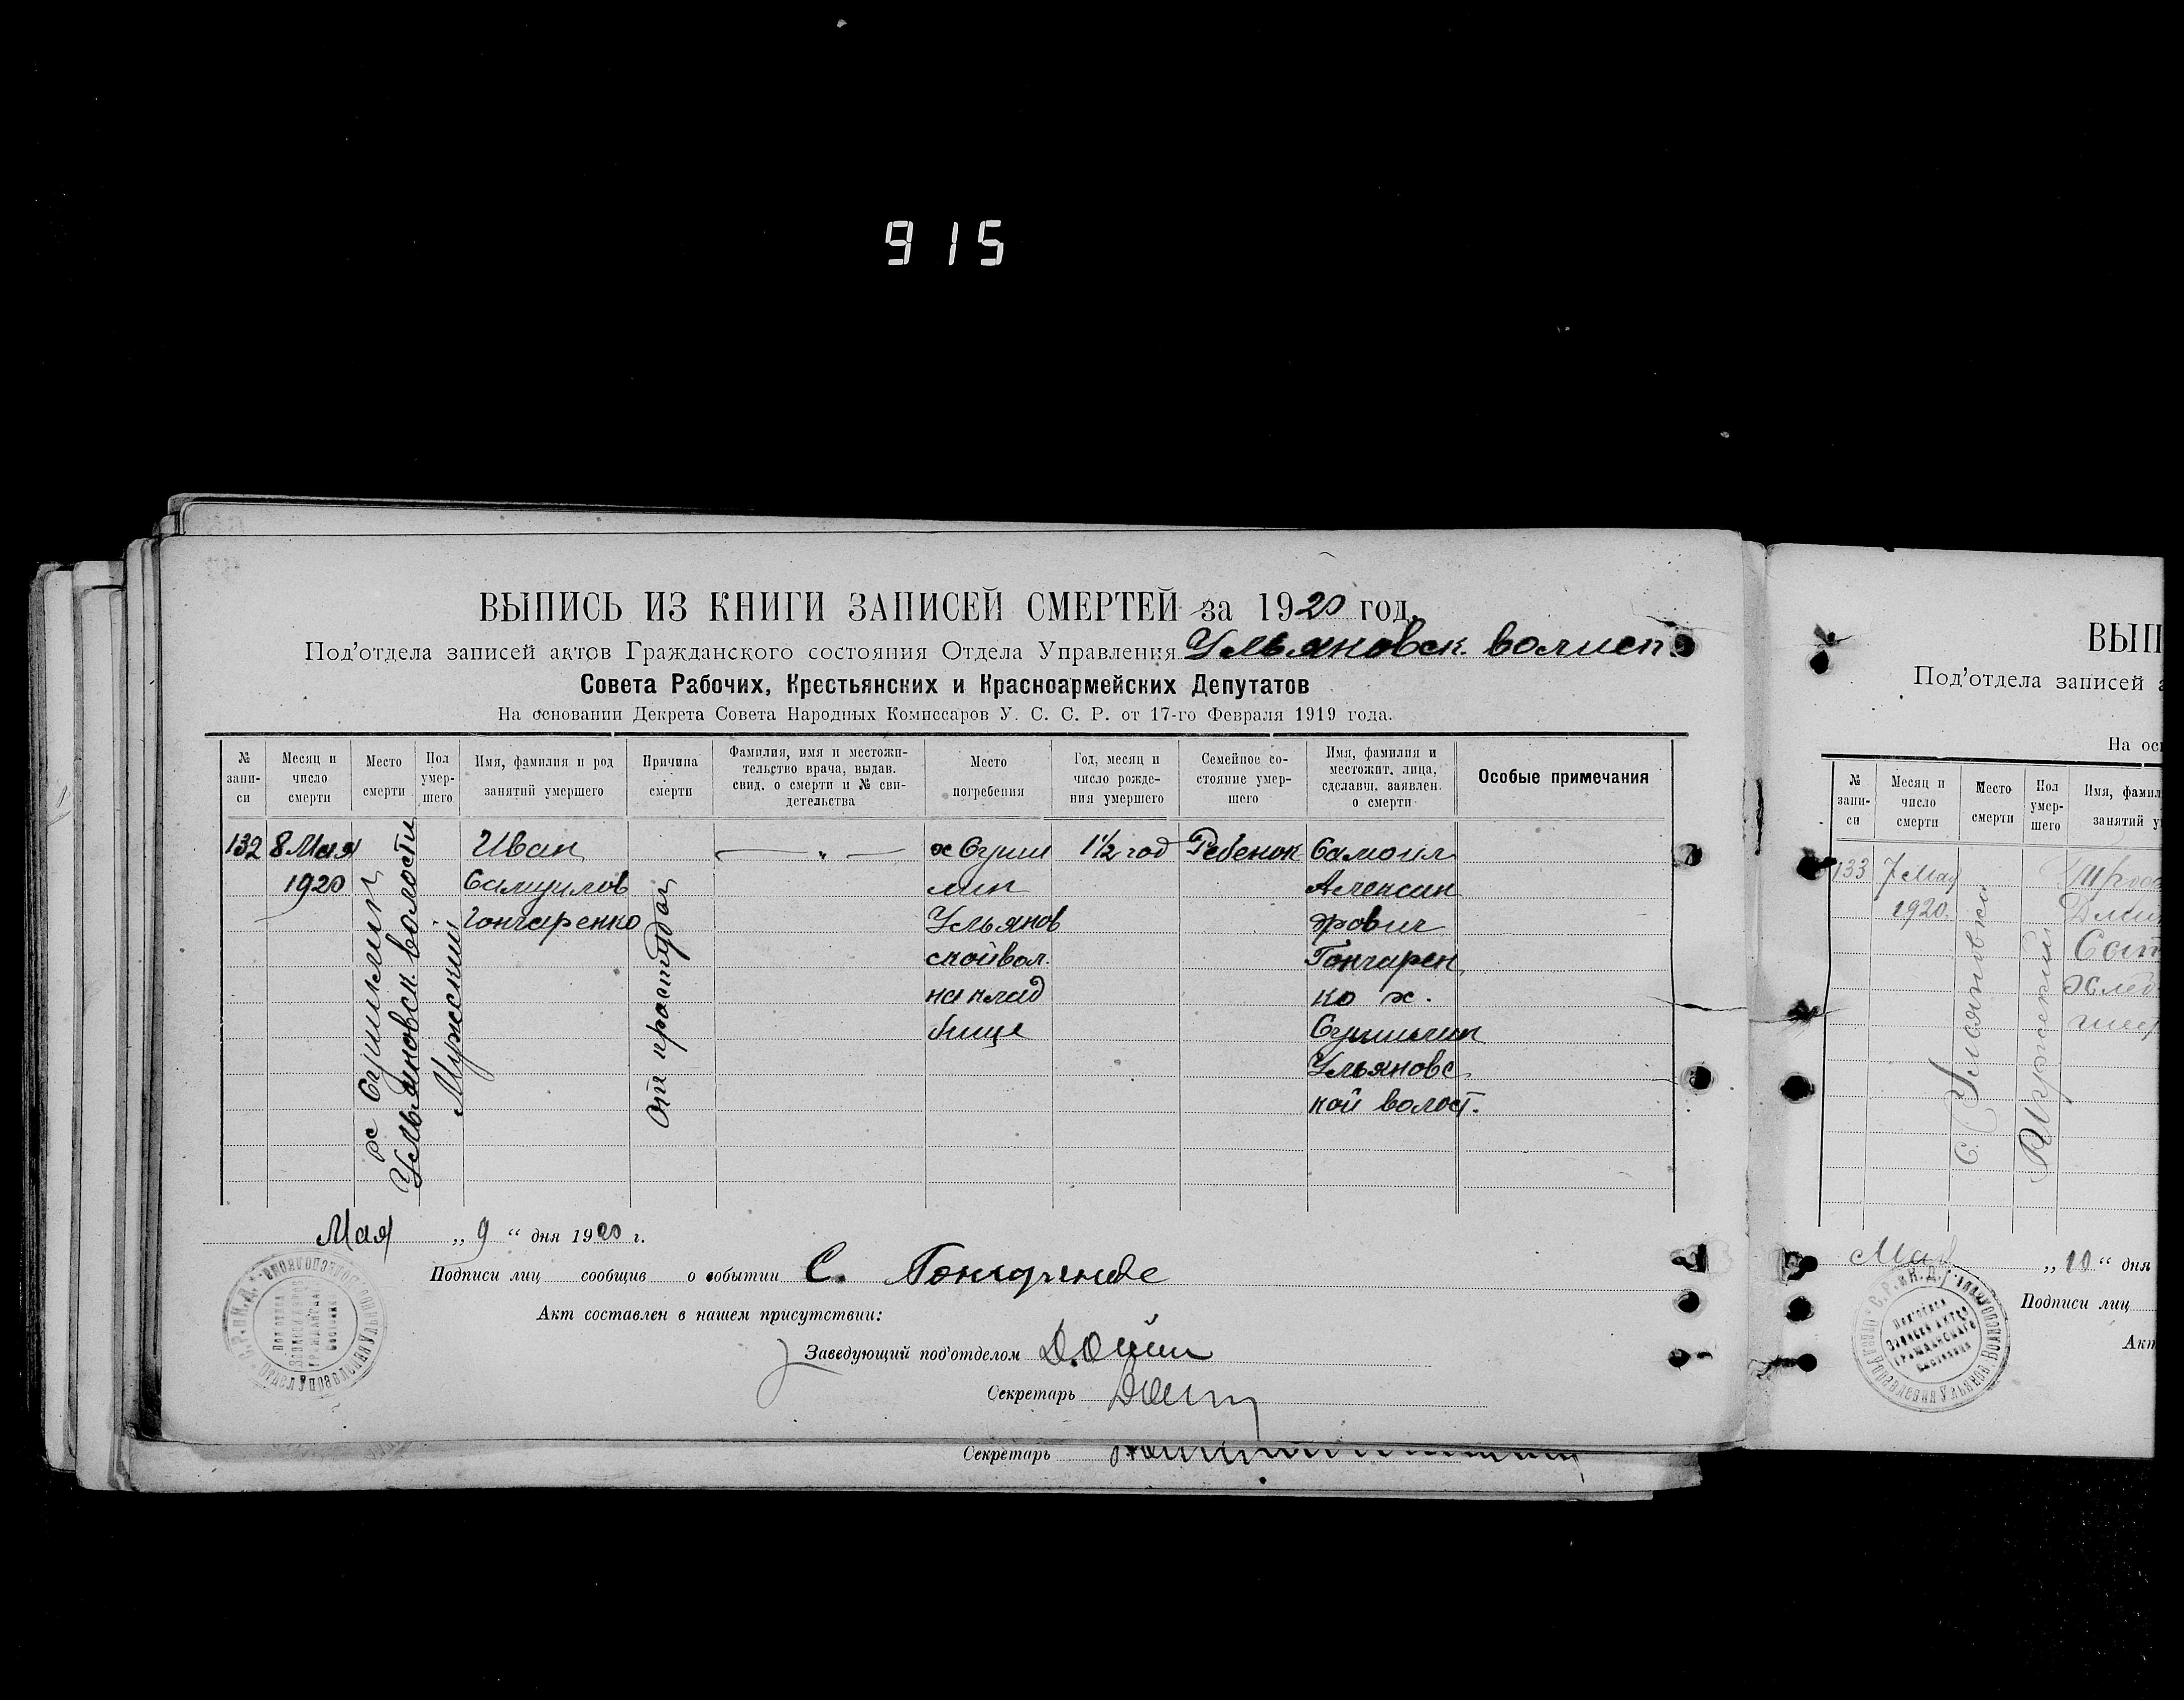 915
ВЫПИСЬ ИЗ КНИГИ ЗАПИСЕЙ СМЕРТЕЙ за 1920 год.
Под'отдела записей актов Гражданского состояния Отдела Управления Ульяновск. волисп.
Совета Рабочих, Крестьянских и Красноармейских Депутатов
На основании Декрета Совета Народных Комиссаров У. С. С. Р. от 17-го Февраля 1919 года.
№ запи-
си
Месяц и
число
смерти
Место
смерти
Пол
умер-
шего
Имя, фамилия и род
занятий умершего
Причина
смерти
Фамилия, имя и местожи-
тельство врача, выдав.
свид. о смерти и № сви-
детельства
Место
погребения
Год, месяц и
число рожде-
ния умершего
Семейное со-
стояние умер-
шего
Имя, фамилия и
местожит. лица,
сделавш. заявлен.
о смерти
Особые примечания
132
8 Мая
1920
Ульяновск. волости
Мужский
Иван
Самуилов
Гончаренко
от простуды
— „ —
Ульянов
ской вол.
на клад
бище
1½ год
Ребенок
Самоил
Алексан
дрович
Гончарен
ко х.
Ульяновс
кой волост.
Мая „ 9 “ дня 1920 г.
Подписи лиц сообщив о событии С.
Акт составлен в нашем присутствии:
Заведующий под'отделом
Секретарь
Секретарь
ВЫП
Под'отдела записей а
На осн
№
запи-
си
Месяц и
число
смерти
Место
смерти
Пол
умер-
шего
Имя, фамил
занятий у
133
7 Мая
1920.
с. Ульяновка
Мужский
Мая „ 10 “ дня
Подписи лиц
Акт